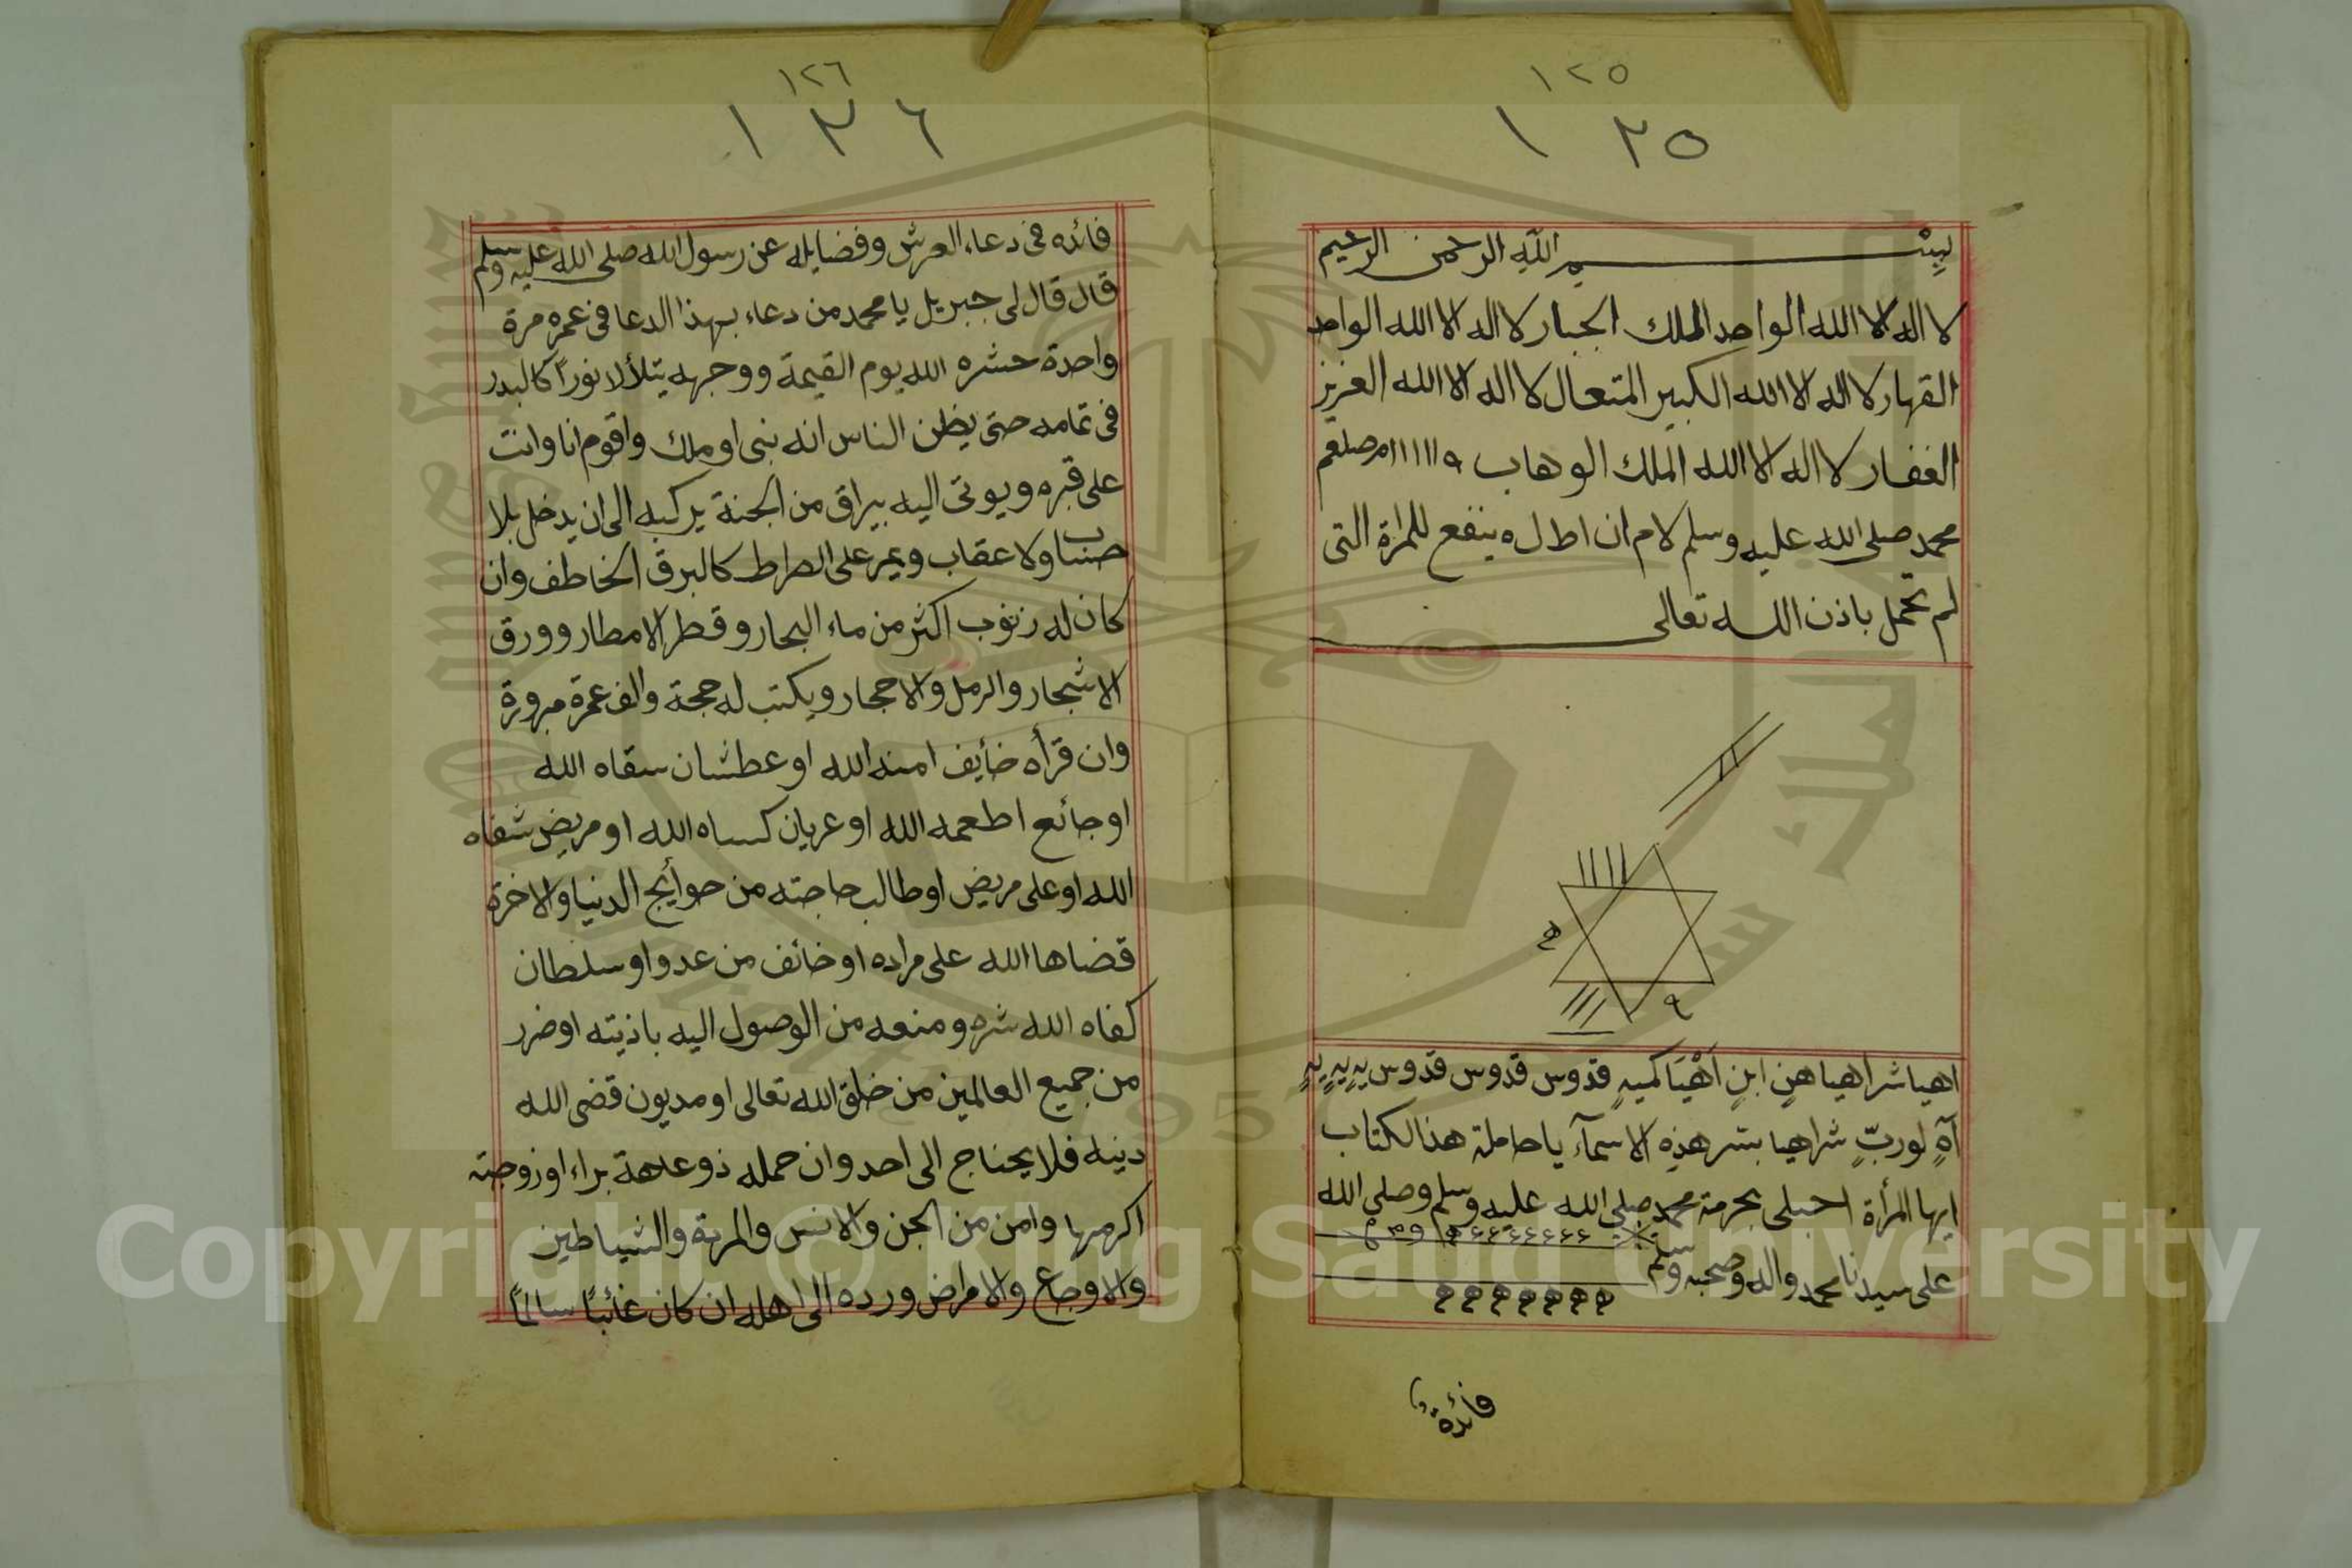 ١٢٥
١٢٥
بسم الله الرحمن الرحيم
لا اله الا الله الواحد الملك الجبار لا اله الا الله الواحد
القهار لا اله الا الله الكبير المتعال لا اله الا الله العزيز
الغفار لا اله الا الله الملك الوهاب
محمد صلى الله عليه وسلم لام ان اط ل ه ينفع للمراة التى
لم تحمل باذن الله تعالى
اهيا شراهيا هنٍ ابنٍ اَهْيَا كميهٍ قدوس قدوس قدوس يهٍ يهٍ يهٍ
آهٍ لوربّ شراهيا بسر هذهِ الاسمآء يا حاملة هذا لكتاب
ايها المرأة احبلى بحرمة محمد صلى الله عليه وسلم وصلى الله
على سيدنا محمد واله وصحبه وسلم
فائدة
١٢٦
١٢٦
فائده فى دعاء العرش وفضايله عن رسول الله صلى الله عليه وسلم
قال قال لى جبريل يا محمد من دعاء بهذا الدعا فى عمره مرة
واحدة حشره الله يوم القيمة ووجهه يتلألا نوراً كالبدر
فى تمامه حتى يظن الناس انه نبى او ملك واقوم انا وانت
على قبره ويوتى اليه ببراق من الجنة يركبه الى ان يدخل بلا
حساب ولا عقاب ويمر على الصراط كالبرق الخاطف وان
كان له زنوب اكثر من ماء البحار وقطر الامطار وورق
الاشجار والرمل والاحجار ويكتب له حجة والف عمرة مبرورة
وان قرأه خأيف امنه الله او عطشان سقاه الله
او جائع اطعمه الله او عريان كساه الله او مريض شفاه
الله او على مريض او طالب حاجته من حوأيج الدنيا والاخرة
قضاها الله على مراده او خائف من عدو او سلطان
كفاه الله شره ومنعه من الوصول اليه باذيته او ضرر
من جميع العالمين من خلق الله تعالى او مديون قضى الله
دينه فلا يحتاج الى احد وان حمله ذو عاهة براء او زوجته
اكرمها وامن من الجن والانس والمرة والشياطين
والاوجاع والامراض ورده الى اهله ان كان غائباً سالماً
Copyright © King Saud University
1957